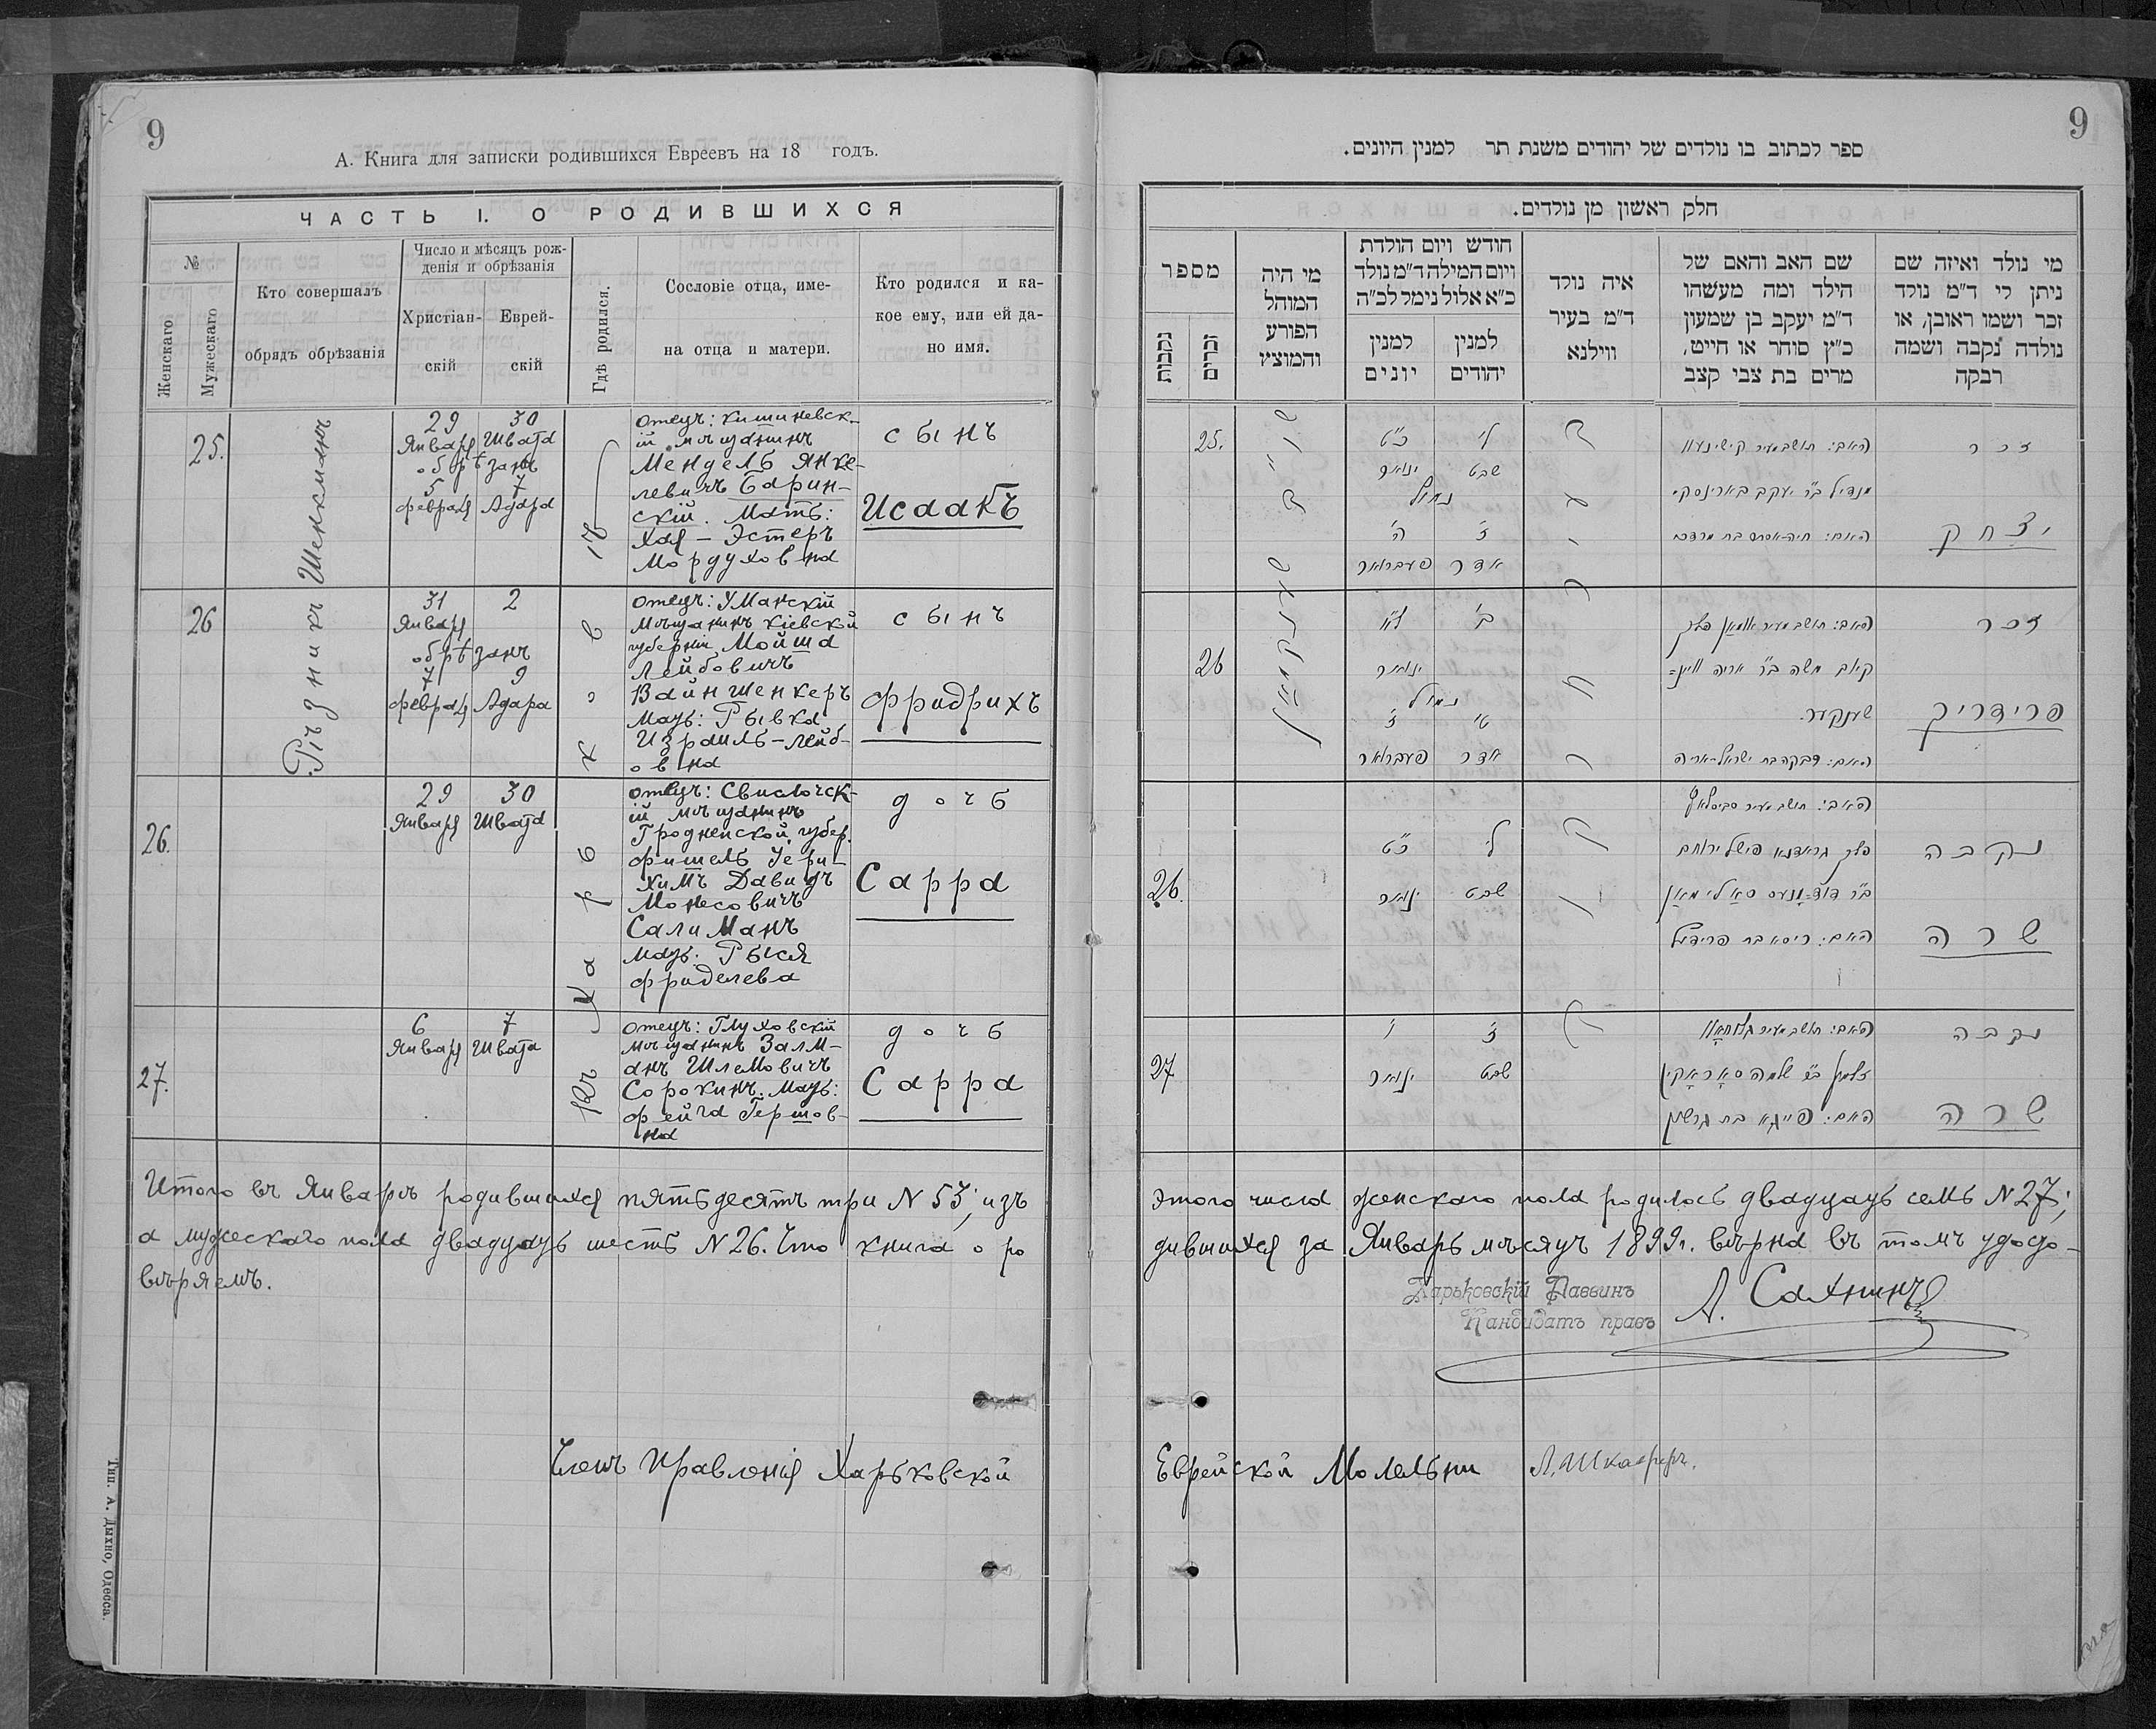 9
А. Книга для записки родившихся Евреевъ на 18 годъ.
ЧАСТЬ I. О РОДИВШИХСЯ
№
Женскаго
Мужескаго
Кто совершалъ
обрядъ обрѣзанія
Число и мѣсяцъ рож-
денія и обрѣзанія
Христіан-
скій
Еврей-
скій
Гдѣ родился.
Сословіе отца, име-
на отца и матери.
Кто родился и ка-
кое ему, или ей да-
но имя.
Рѣзникъ Шенкманъ
Въ Харьковѣ
25.
29 30
Января Швата
обрѣзанъ
5 7
февраля Адара
Отецъ: Кишиневск-
ій мѣщанинъ
Мендель Янке-
левичъ Барин-
скій. Мать:
Хая-Эстеръ
Мордуховна
сынъ
Исаакъ
26
31 2
Января
обрѣзанъ
7 9
февраля Адара
Отецъ: Уманскій
мѣщанинъ Кіевской
губерніи Мойша
Лейбовичъ
Вайншенкеръ
Мать: Рывка
Израиль-Лейб-
овна
сынъ
Фридрихъ
26.
29 30
Января Швата
Отецъ: Свислочск-
ій мѣщанинъ
Гродненской губер.
Фишель Іери-
химъ Давидъ
Монесовичъ
СалиМанъ
Мать: Рыся
Фриделева
дочь
Сарра
27.
6 7
Января Швата
Отецъ: Глуховскій
мѣщанинъ Залм-
анъ Шлемовичъ
Сорокинъ. Мать:
Фейга Гершов-
на
дочь
Сарра
Итого въ Январѣ родившихся пятьдесятъ три N 53; изъ
а мужескаго пола двадцать шесть N 26. Что книга о ро
вѣряемъ.
Членъ Правленія Харьковской
Тип. А. Дыхно, Одесса.
9
ספר לכתוב בו נולדים של יהודים משנת תר למנין היונים.
חלק ראשון מן נולדים.
מספר
נקבות
זכרים
מי היה
המוהל
הפורע
והמוצץ
חודש ויום הולדת
ויום המילה ד"מ נולד
כ"א אלול נימל לכ"ה
למנין
יונים
למנין
יהודים
איה נולד
ד"מ בעיר
ווילנא
שם האב והאם של
הילד ומה מעשהו
ד"מ יעקב בן שמעון
כ"ץ סוחר או חייט,
מרים בת צבי קצב
מי נולד ואיזה שם
ניתן לי ד"מ נולד
זכר ושמו ראובן, או
נולדה נקבה ושמה
רבקה
25.
כ"ט ל'
ינואר שבט
נמול
ה' ז'
פעברואר אדר
האב: תושב מעיר קישינעוו
מנדיל ב"ר יעקב בארינסקי
האם: חיה-אסתר בת מרדכי
זכר
יצחק
26
ל"א ב'
ינואר
נמול
ז' ט'
פעברואר אדר
האב: תושב מעיר אומאַן פלך
קיוב משה ב"ר אריה וויינ=
שענקער.
האם: רבקה בת ישראל-אריה
זכר
פרידריך
26.
כ"ט ל'
ינואר שבט
נקבה
שרה
27
ו' ז'
ינואר שבט
זלמן ב"ר שלמה סאָראָקין
האם: פייגא בת גרשון
נקבה
שרה
этого числа женскаго пола родилось двадцать семь N 27;
дившихся за Январь мѣсяцъ 1899г. вѣрна въ томъ удосто-
Харьковскій Раввинъ
Кандидатъ правъ
А. Сахнинъ
Еврейской Молельни